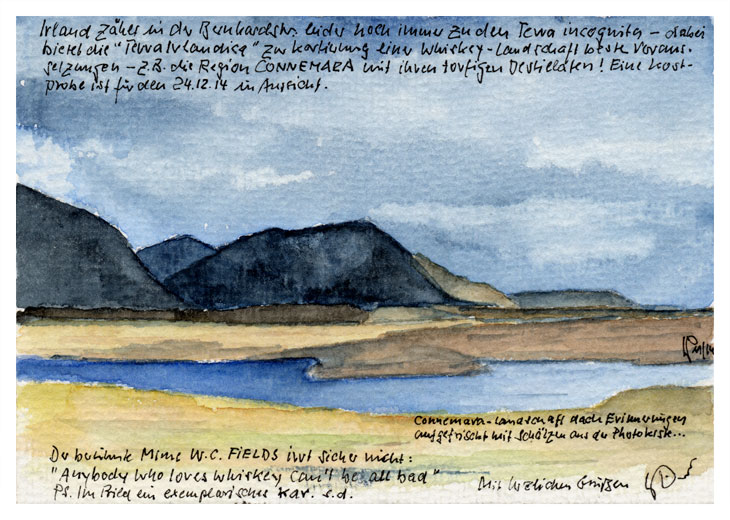 Irland zählt in der Bernhardstr. leider noch immer zu den Terra incognita – dabei
bietet die "Terra Irlandica" zur Kartierung einer Whiskey-Landschaft beste Voraus-
setzungen – z.B. die Region CONNEMARA mit ihren torfigen Destillaten! Eine Kost-
probe ist für den 24.12.14 in Aussicht.
Connemara-Landschaft nach Erinnerungen
aufgefrischt mit Schätzen aus der Photokiste...
Der berühmte Mime W.C. FIELDS irrt sicher nicht:
"Anybody who loves whiskey, can't be all bad"
Ps. Im Bild ein exemplarisches Kar. e.d.
Mit herzlichen Grüßen